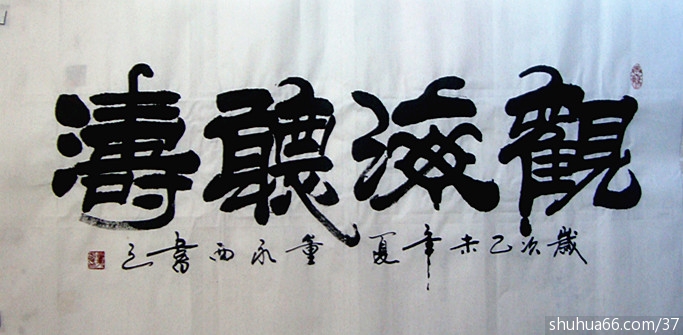 觀海聽濤
歲次乙未年夏董永西書
shuhua66.com/37